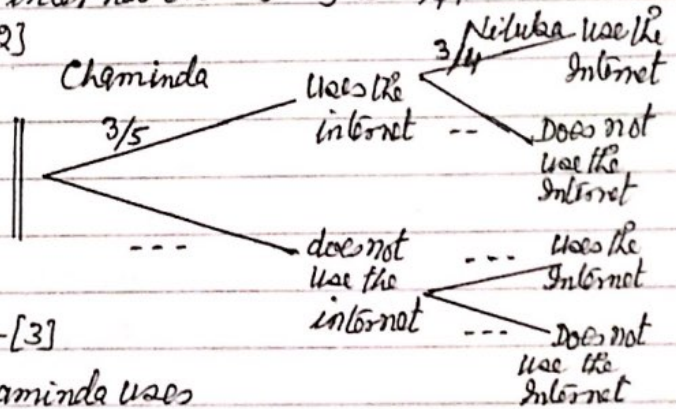 2]
Chaminda
3/5
Uses the
internet
3/4
Niluka use the
Internet
--
Does not
use the
Internet
---
does not
Use the
internet
---
uses the
Internet
---
Does not
use the
Internet
-[3]
aminda uses